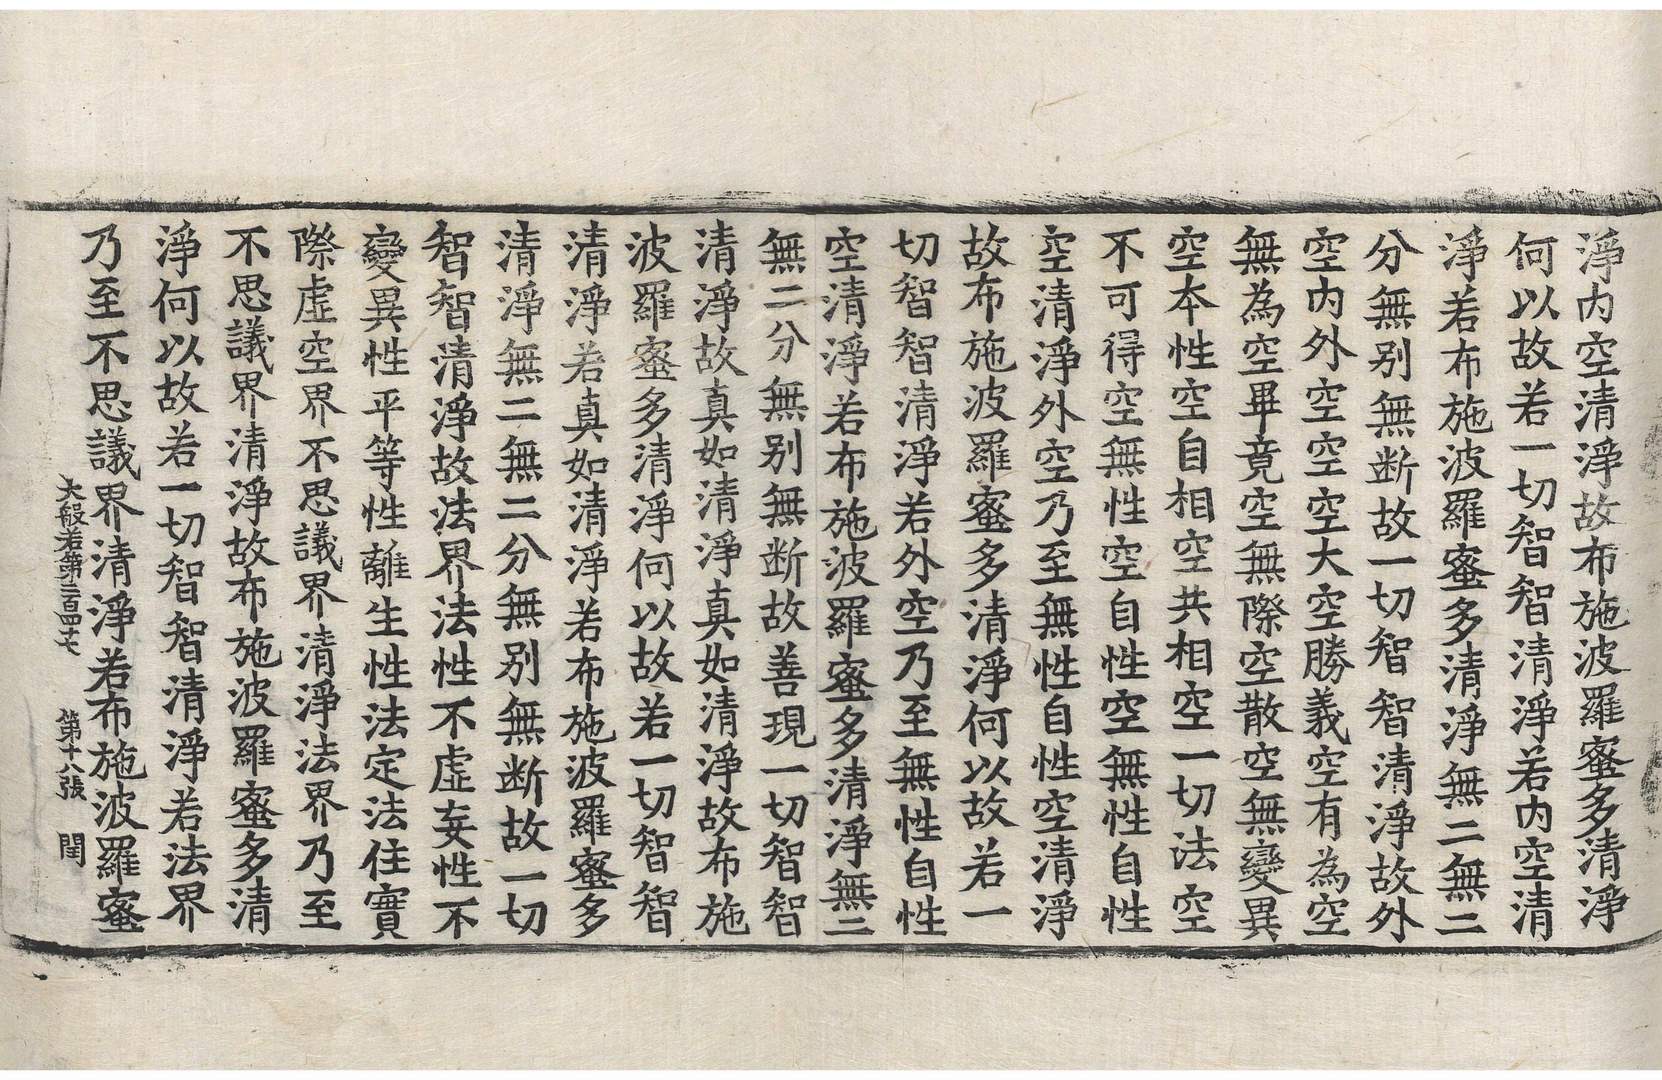 淨内空清淨故布施波羅蜜多清淨
何以故若一切智智清淨若内空清
淨若布施波羅蜜多清淨無二無二
分無别無断故一切智智清淨故外
空内外空空空大空勝義空有為空
無為空畢竟空無際空散空無變異
空本性空自相空共相空一切法空
不可得空無性空自性空無性自性
空清淨外空乃至無性自性空清淨
故布施波羅蜜多清淨何以故若一
切智智清淨若外空乃至無性自性
空清淨若布施波羅蜜多清淨無二
無二分無别無断故善現一切智智
清淨故真如清淨真如清淨故布施
波羅蜜多清淨何以故若一切智智
清淨若真如清淨若布施波羅蜜多
清淨無二無二分無别無断故一切
智智清淨故法界法性不虚妄性不
變異性平等性離生性法定法住實
際虚空界不思議界清淨法界乃至
不思議界清淨故布施波羅蜜多清
淨何以故若一切智智清淨若法界
乃至不思議界清淨若布施波羅蜜
大般若第二百四十七 第十八張 閏